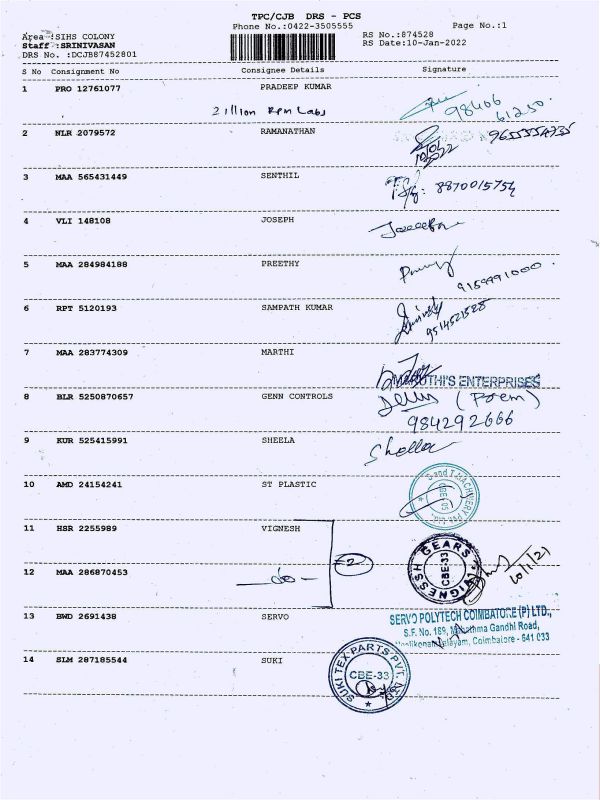 TPC/CJB DRS - PCS
Phone No.:0422-3505555
Page No.:1
Area :SIHS COLONY
RS No.:874528
Staff :SRINIVASAN
RS Date:10-Jan-2022
DRS No. :DCJB87452801
S No Consignment No Consignee Details Signature
1 PRO 12761077 PRADEEP KUMAR
Zillion Rpm Labs
98406
61250
2 NLR 2079572 RAMANATHAN
10/01/2022
3 MAA 565431449 SENTHIL
8870015754
4 VLI 148108 JOSEPH
5 MAA 284984188 PREETHY
9159991000
6 RPT 5120193 SAMPATH KUMAR
9514521525
7 MAA 283774309 MARTHI
MARUTHI'S ENTERPRISES
8 BLR 5250870657 GENN CONTROLS
984292666
9 KUR 525415991 SHEELA
Sheella
10 AMD 24154241 ST PLASTIC
S and T MACHINERY
CBE-05
11 HSR 2255989 VIGNESH
2
VIGNESSH GEARS
CBE-33
12 MAA 286870453 —do—
10/1/21
13 BWD 2691438 SERVO
SERVO POLYTECH COIMBATORE (P) LTD.,
S.F. No. 189, Mahathma Gandhi Road,
Coimbatore - 641 033
14 SLM 287185544 SUKI
SUKI TEX PARTS PVT. LTD
CBE-33